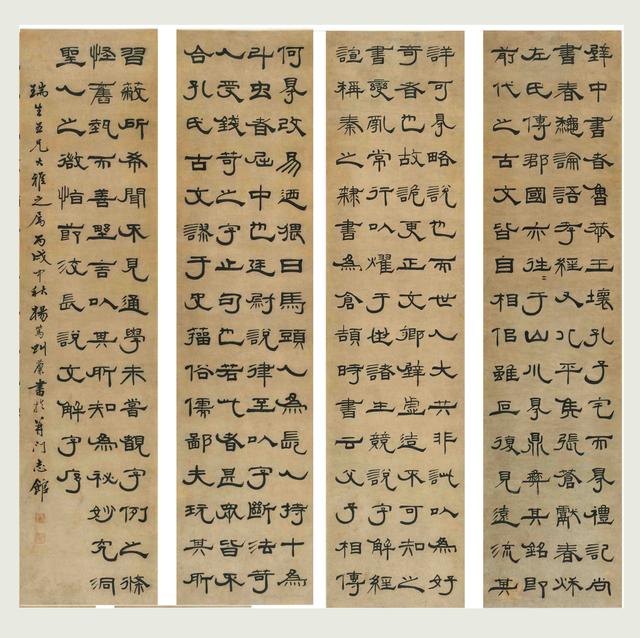 壁中書者魯恭王壞孔子宅而得禮記尚
書春龝論語孝經又北平侯張蒼獻春秋
左氏傳郡國亦往〻于山川得鼎彝其銘即
前代之古文皆自相佀雖叵復見遠流其
詳可得略說也而世人大共非訾以為好
奇者也故詭更正文鄉壁虛造不可知之
書變亂常行以燿于世諸生競說字解經
諠稱秦之隸書為倉頡時書云父子相傳
何得改易迺猥曰馬頭人為長人持十為
斗虫者屈中也廷尉說律至以字斷法苛
人受錢苛之字止句也若此者甚眾皆不
合孔氏古文謬于史籀俗儒鄙夫玩其所
習蔽所希聞不見通學未嘗覩字例之條
怪舊埶而善野言以其所知為祕妙究洞
聖人之微恉前汶長說文解字序
瑞生五兄大雅之屬丙戌中秋楊書於門志館